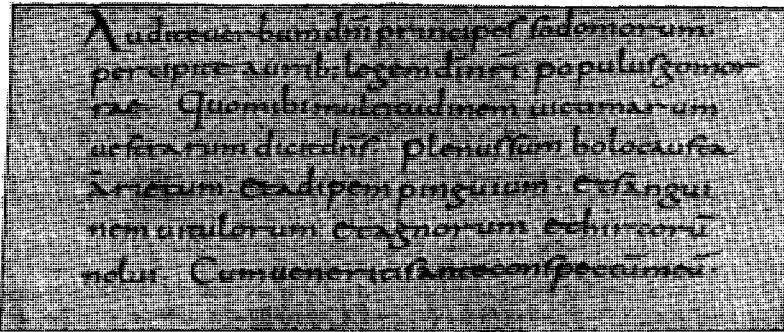 Audite uerbum dni principes sodomorum.
percipite aurib; legem di nri populus gomor
rae Quo mihi multitudinem uictimarum
uestrarum dicit dns Plenus sum holocausta
Arietum. et adipem pinguium. et sangui
nem uitulorum et agnorum et hircorū
nolui. Cum ueneritis ante conspectū meū.